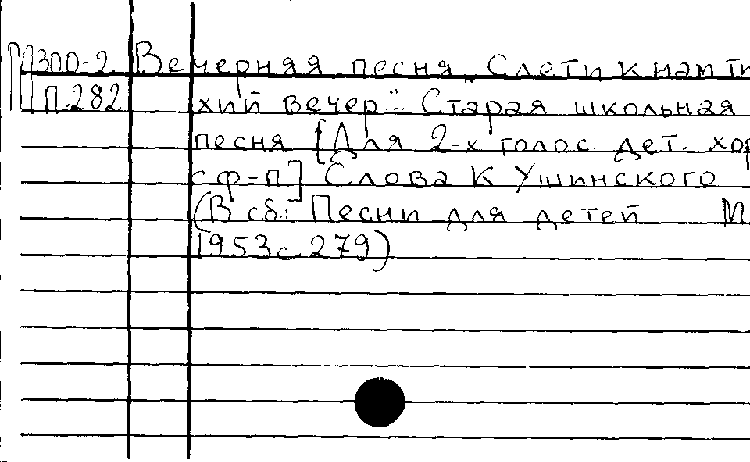 М300-2 Вечерняя песня „Слети к нам ти
П 282 хий вечер". Старая школьная
песня [Для 2-х голос. дет. хор
с ф-п] Слова К Ушинского
(В сб: Песни для детей М.
1953 с 279)